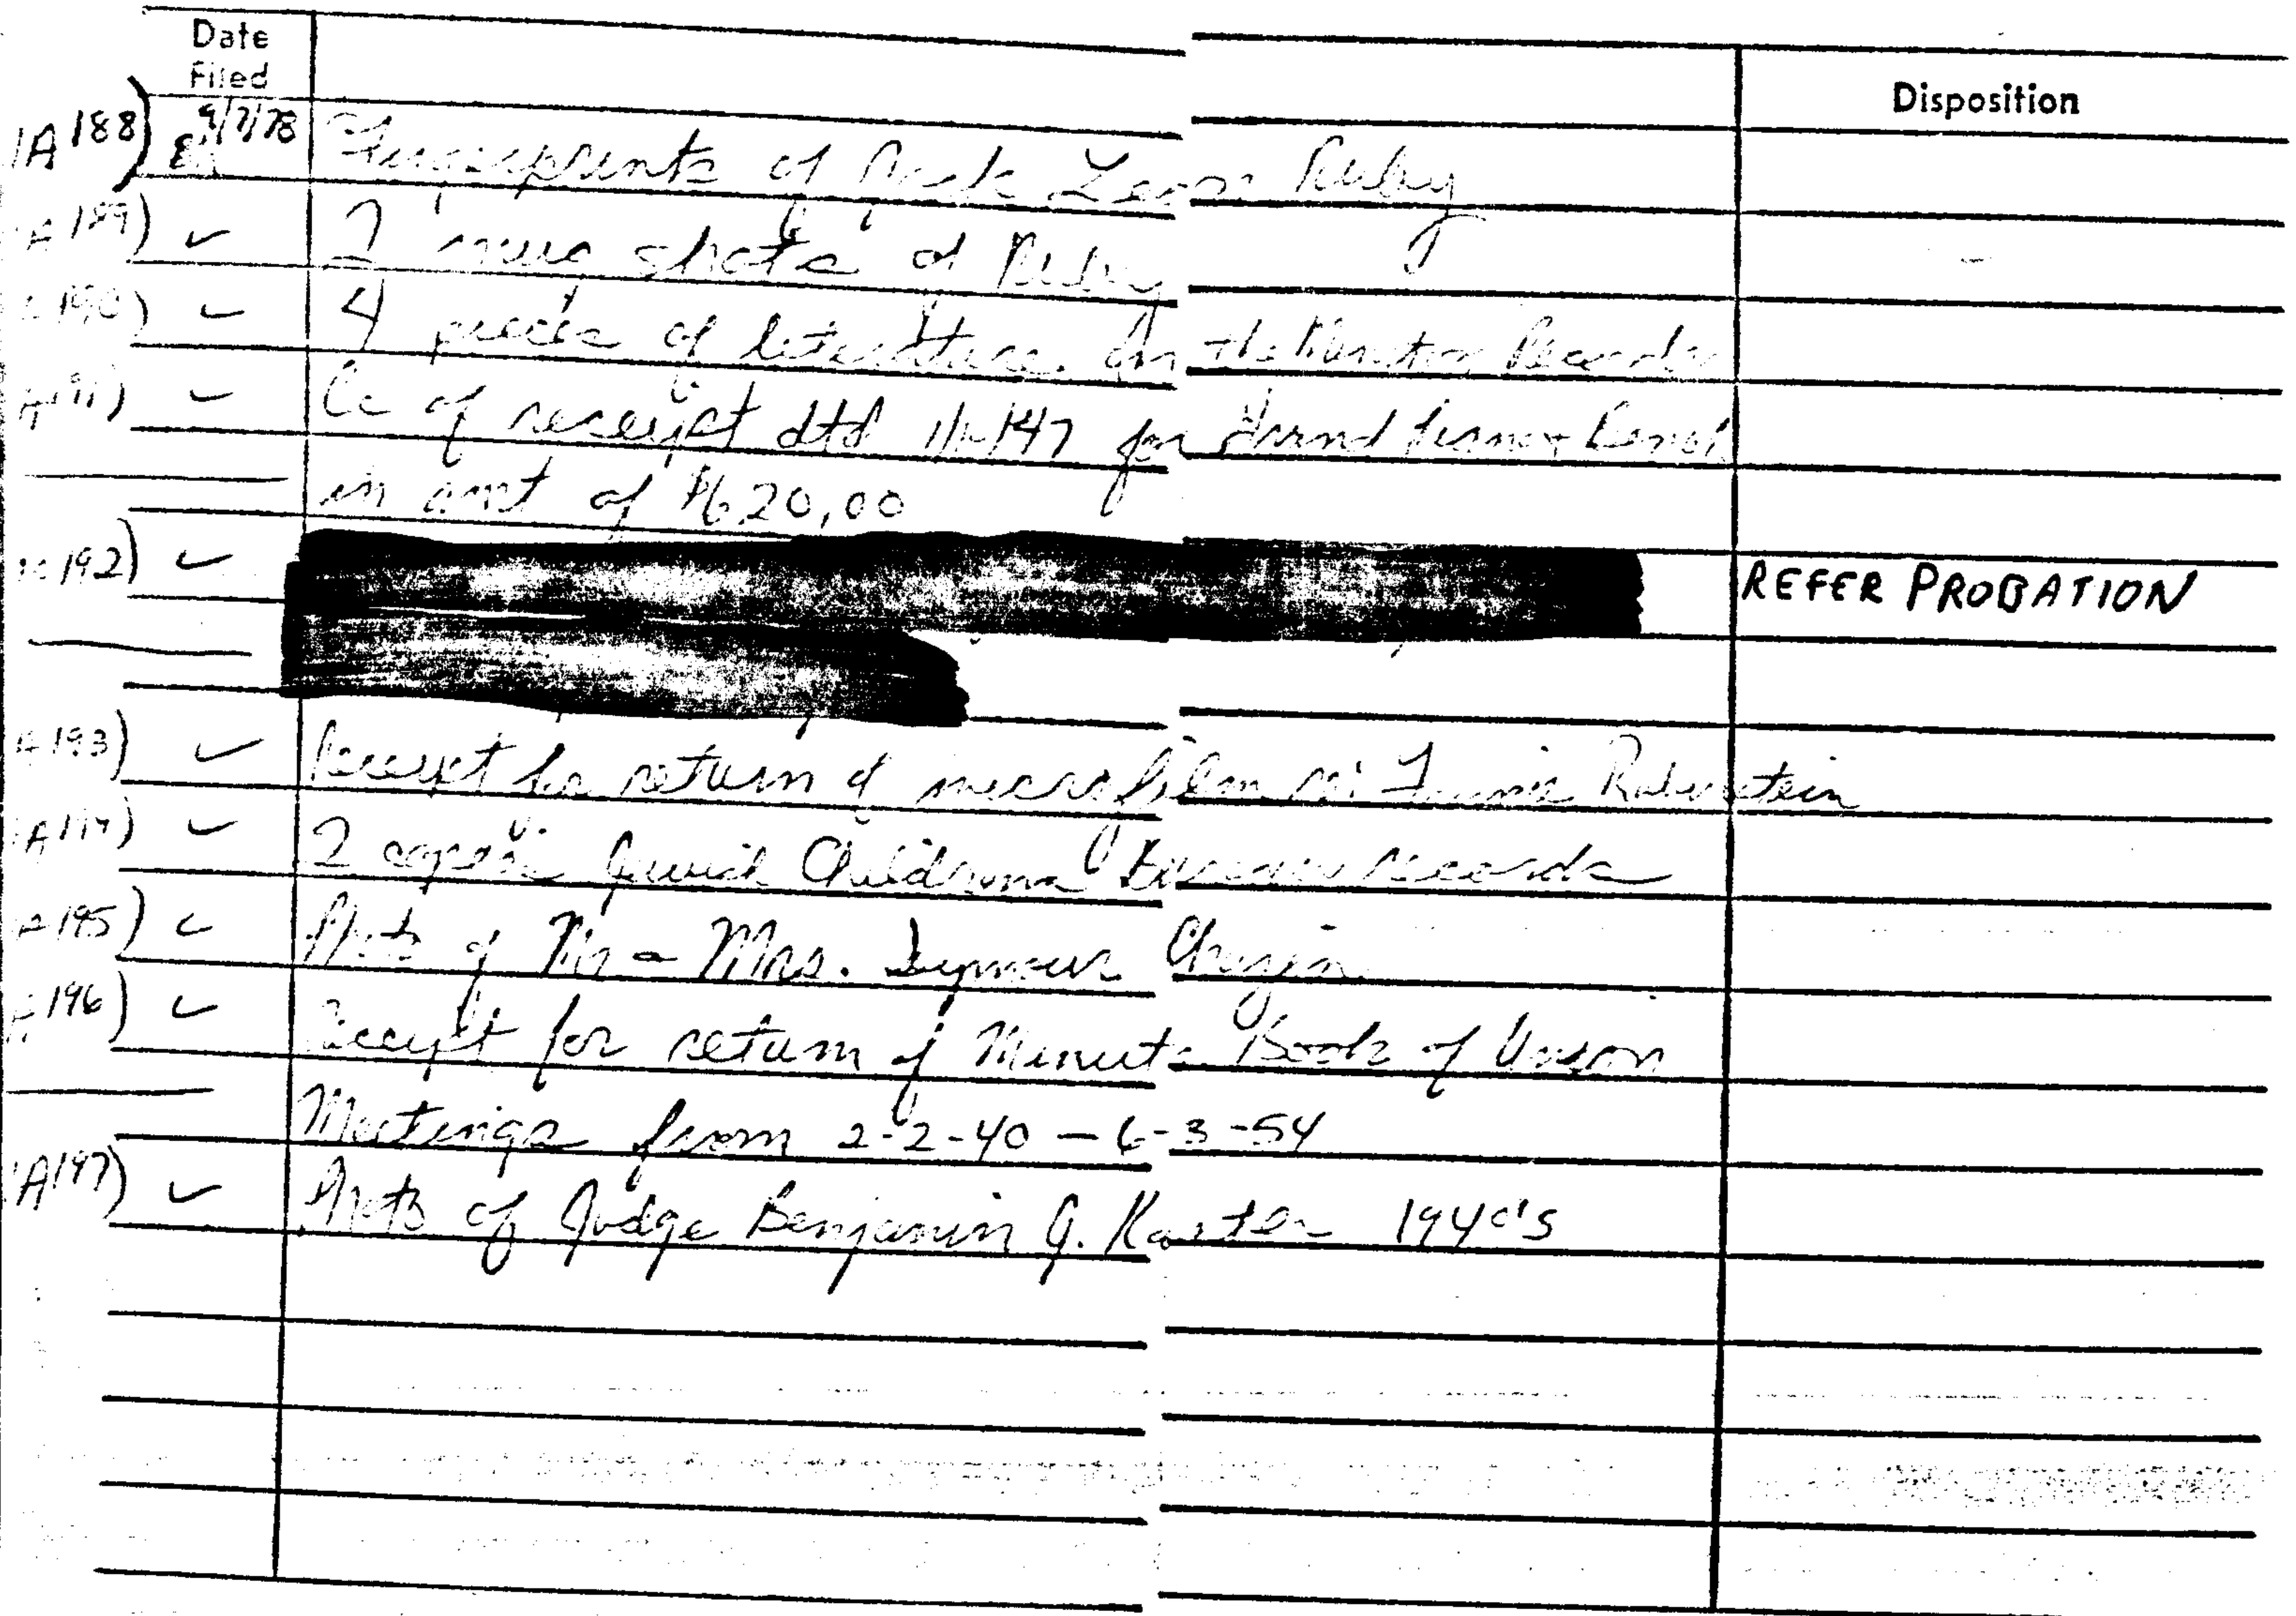 Date
Filed
Disposition
1A188) 9/7/78 Fingerprints of Jack Leon Ruby
A189) ✓ 2 mug shots of Ruby
190) ✓ 4 pieces of literature on the Records
A191) ✓ Cc of receipt dtd for Grand piano & Bench
in amt of $620.00
192) ✓
REFER PROBATION
A193) ✓ Receipt for return of microfilm re: Fannie Rubenstein
A194) ✓ 2 copies Jewish Childrens Bureau records
A195) ✓ Photo of Mr - Mrs. Seymour
A196) ✓ Receipt for return of Minute Book of Union
Meetings from 2-2-40 - 6-3-54
1A197) ✓ Photo of Judge Benjamin G. 1940's